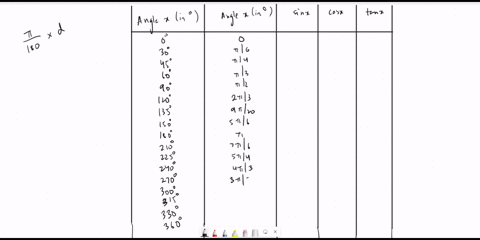 π/180 × d
Angle x (in °) Angle x (in °) sinx cosx tanx
0° 0
30° π/6
45° π/4
60° π/3
90° π/2
120° 2π/3
135° 9π/20
150° 5π/6
180° π
210° 7π/6
225° 5π/4
240° 4π/3
270° 3π/
300°
315°
330°
360°